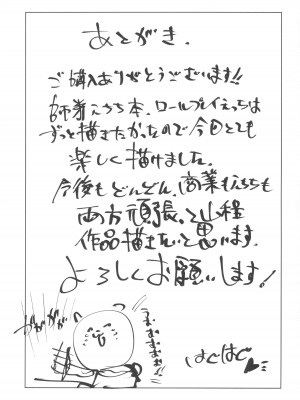 あとがき.
ご購入ありがとうございます!!
師弟えっち本、ロールプレイえっちは
ずっと描きたかったので今回とても
楽しく描けました.
今後もどんどん、商業もえっちも
両方頑張って山程
作品描きたいと思います.
よろしくお願いします!
ガガガガ
はじはじ